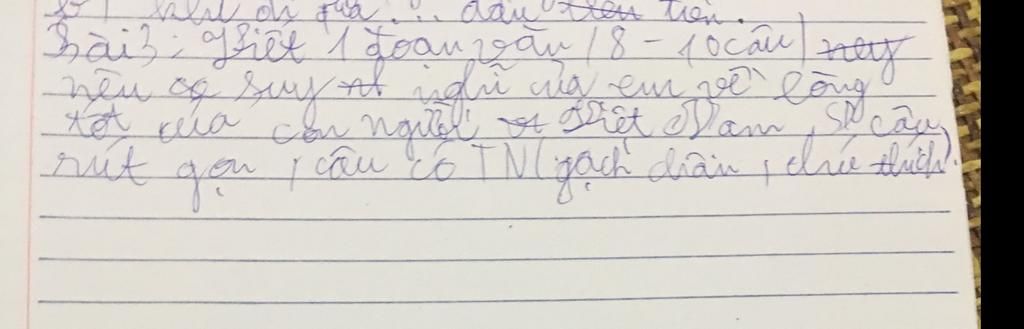 khi đi qua ... dấu trên tiên.
Bài 3: Viết 1 đoạn văn (8-10 câu) nay
nêu cs suy nt nghĩ của em về lòng
tốt của con người Việt Nam, SD câu
rút gọn, câu có TN (gạch chân, chú thích).